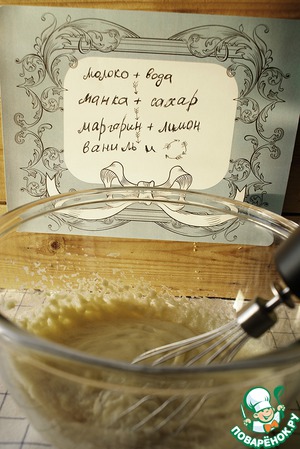 молоко + вода
манка + сахар
маргарин + лимон
ваниль и
ПОВАРЁНОК.РУ